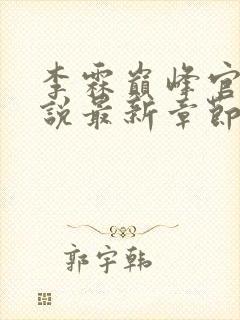 李霖巅峰官
說最新章節
郭宇韩